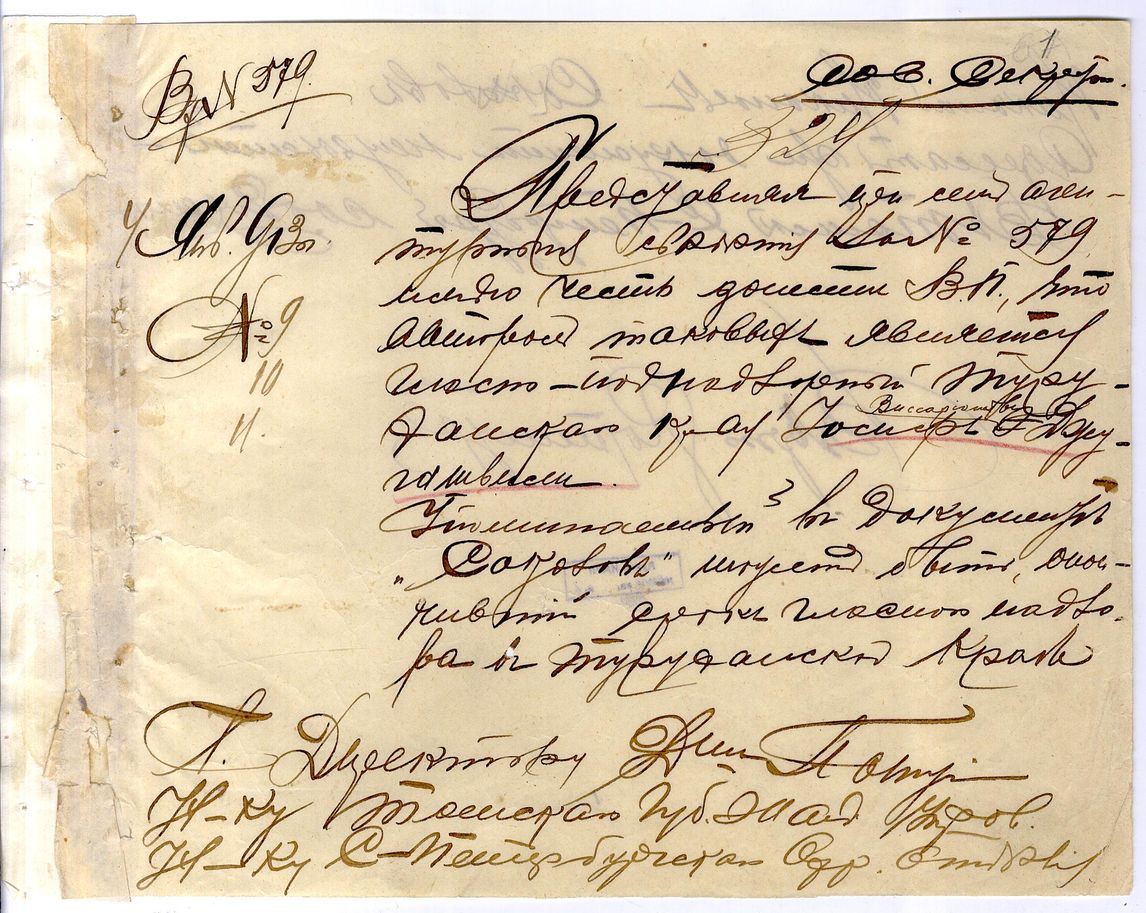 Вр № 579.
1
Сов. Секретн.
4 Янв. 913 г.
№ 9
10
11.
Представляя при сем аген-
турныя сведенiя за № 579,
имею честь донести В.П., что
автором таковых является
гласно-поднадзорный Туру-
ханскаго края Iосиф Виссарiонович Джу-
гашвили.
Упоминаемый в документе
„Соколов"
чивший срок гласного надзо-
ра в Туруханском крае
Г. Директору Деп Полиц
Н-ку Томскаго Губ. Жанд. Управ.
Н-ку С-Петербургскаго Охр. Отделенiя